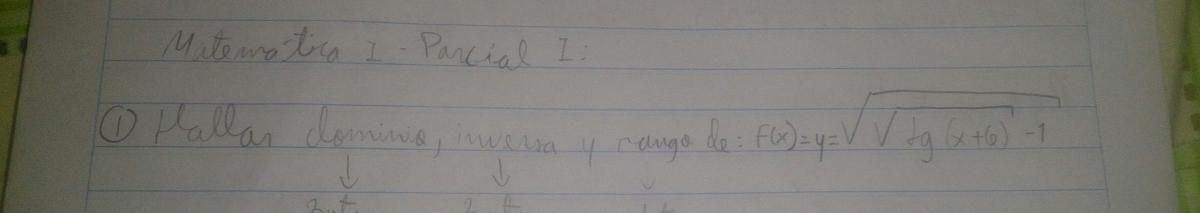 Matemática I - Parcial I:
① Hallar dominio, inversa y rango de: f(x)=y=√(√(tg(x+6))-1)